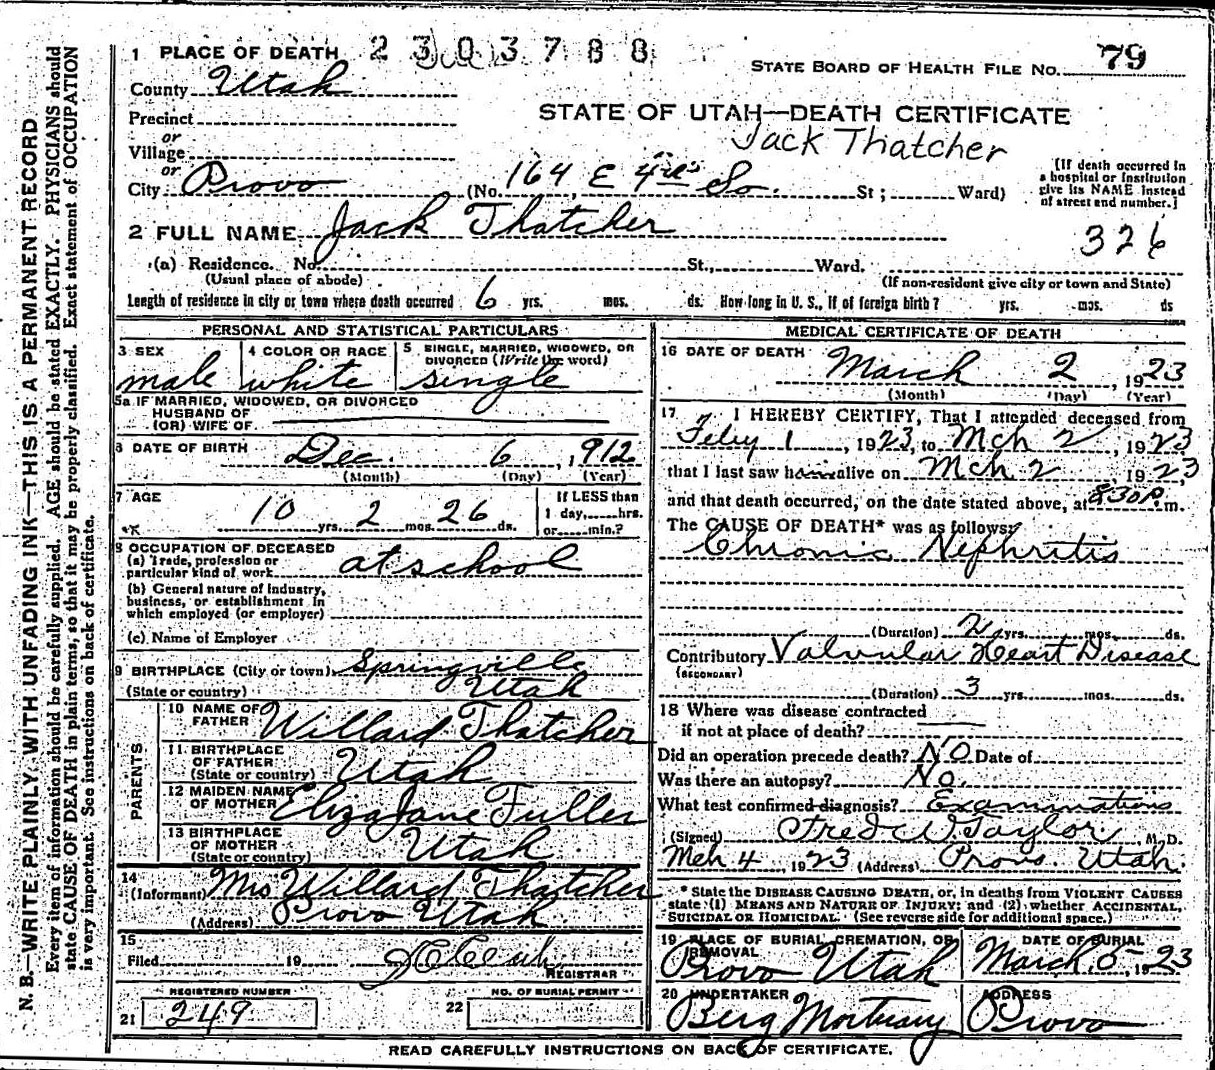 1 PLACE OF DEATH 2303788
STATE BOARD OF HEALTH FILE NO. 79
County Utah
STATE OF UTAH—DEATH CERTIFICATE
Precinct
Jack Thatcher
or
Village
or
City Provo (No. 164 E 4th So. St ; Ward)
(If death occurred in
a hospital or institution
give its NAME instead
of street and number.]
2 FULL NAME Jack Thatcher
326
(a) Residence. No. St., Ward.
(Usual place of abode) (If non-resident give city or town and State)
Length of residence in city or town where death occurred 6 yrs. mos. ds. How long in U. S., if of foreign birth? yrs. mos. ds
PERSONAL AND STATISTICAL PARTICULARS
3 SEX
male
4 COLOR OR RACE
white
5 SINGLE, MARRIED, WIDOWED, OR
DIVORCED (Write the word)
single
5a IF MARRIED, WIDOWED, OR DIVORCED
HUSBAND OF
(OR) WIFE OF
6 DATE OF BIRTH Dec. 6, 1912
(Month) (Day) (Year)
7 AGE
10 yrs. 2 mos. 26 ds.
If LESS than
1 day, hrs.
or min.?
8 OCCUPATION OF DECEASED
(a) Trade, profession or
particular kind of work at school
(b) General nature of industry,
business, or establishment in
which employed (or employer)
(c) Name of Employer
9 BIRTHPLACE (City or town) Springville
(State or country) Utah
PARENTS
10 NAME OF
FATHER Willard Thatcher
11 BIRTHPLACE
OF FATHER
(State or country) Utah
12 MAIDEN NAME
OF MOTHER Eliza Jane Fuller
13 BIRTHPLACE
OF MOTHER
(State or country) Utah
14
(Informant) Mrs Willard Thatcher
(Address) Provo Utah
15
Filed 19
REGISTRAR
REGISTERED NUMBER
21 249
NO. OF BURIAL PERMIT
22
MEDICAL CERTIFICATE OF DEATH
16 DATE OF DEATH March 2, 1923
(Month) (Day) (Year)
17 I HEREBY CERTIFY, That I attended deceased from
Feby 1, 1923, to Mch 2, 1923
that I last saw him alive on Mch 2 1923,
and that death occurred, on the date stated above, at 830 P. m.
The CAUSE OF DEATH* was as follows:
Chronic Nephritis
(Duration) 2 yrs. mos. ds.
Contributory Valvular Heart Disease
(SECONDARY)
(Duration) 3 yrs. mos. ds.
18 Where was disease contracted
if not at place of death?
Did an operation precede death? No Date of
Was there an autopsy? No.
What test confirmed diagnosis? Examinations
(Signed) Fred W Taylor M. D.
Mch 4, 1923 (Address) Provo. Utah.
* State the DISEASE CAUSING DEATH, or, in deaths from VIOLENT CAUSES
state (1) MEANS AND NATURE OF INJURY; and (2) whether ACCIDENTAL,
SUICIDAL OR HOMICIDAL. (See reverse side for additional space.)
19 PLACE OF BURIAL, CREMATION, OR
REMOVAL
Provo Utah
DATE OF BURIAL
March 5, 1923
20 UNDERTAKER
Berg Mortuary
ADDRESS
Provo
READ CAREFULLY INSTRUCTIONS ON BACK OF CERTIFICATE.
N. B.—WRITE PLAINLY, WITH UNFADING INK—THIS IS A PERMANENT RECORD
Every item of information should be carefully supplied. AGE should be stated EXACTLY. PHYSICIANS should
state CAUSE OF DEATH in plain terms, so that it may be properly classified. Exact statement of OCCUPATION
is very important. See instructions on back of certificate.